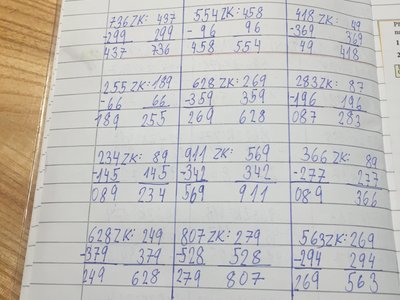 736 ZK: 437 554 ZK: 458 418 ZK: 49
-299 299 -96 96 -369 369
437 736 458 554 49 418
255 ZK: 189 628 ZK: 269 283 ZK: 87
-66 66 -359 359 -196 196
189 255 269 628 087 283
234 ZK: 89 911 ZK: 569 366 ZK: 89
-145 145 -342 342 -277 277
089 234 569 911 089 366
628 ZK: 249 807 ZK: 279 563 ZK: 269
-379 379 -528 528 -294 294
249 628 279 807 269 563